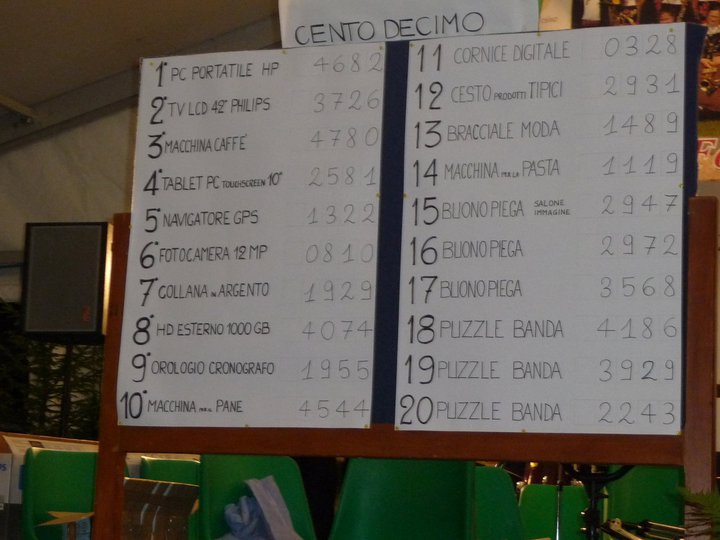 CENTO DECIMO
1° PC PORTATILE HP 4682
2° TV LCD 42" PHILIPS 3726
3° MACCHINA CAFFE' 4780
4° TABLET PC TOUCHSCREEN 10" 2581
5° NAVIGATORE GPS 1322
6° FOTOCAMERA 12 MP 0810
7° COLLANA IN ARGENTO 1929
8° HD ESTERNO 1000 GB 4074
9° OROLOGIO CRONOGRAFO 1955
10° MACCHINA PER IL PANE 4544
11 CORNICE DIGITALE 0328
12 CESTO PRODOTTI TIPICI 2931
13 BRACCIALE MODA 1489
14 MACCHINA PER LA PASTA 1119
15 BUONO PIEGA SALONE IMMAGINE 2947
16 BUONO PIEGA 2972
17 BUONO PIEGA 3568
18 PUZZLE BANDA 4186
19 PUZZLE BANDA 3929
20 PUZZLE BANDA 2243